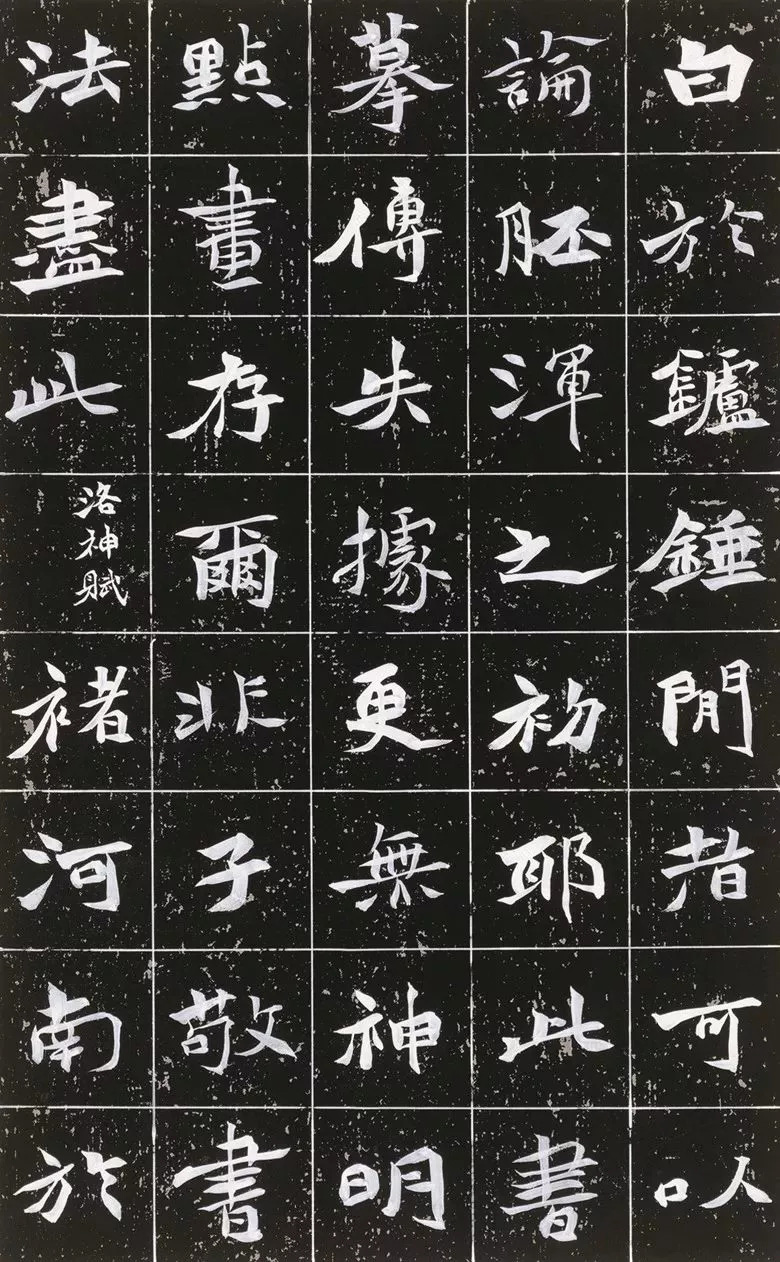 白於鑪錘間者可以
論胚渾之初耶此書
摹傳失據更無神明
點畫存爾非子敬書
法盡此洛神賦褚河南於